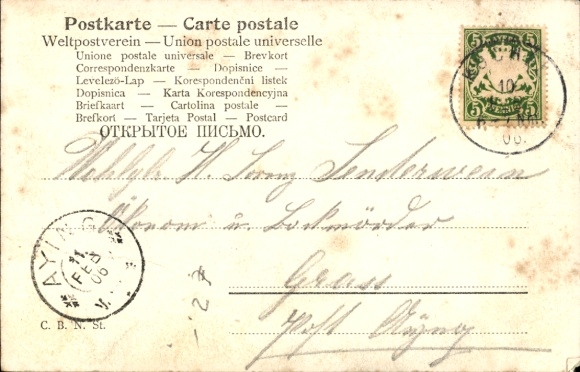 Postkarte — Carte postale
Weltpostverein — Union postale universelle
Unione postale universale — Brevkort
Correspondenzkarte — Dopisnice —
Levelezö-Lap — Korespondenční listek
Dopisnica — Karta Korespondencyjna
Briefkaart — Cartolina postale —
Brefkort — Tarjeta Postal — Postcard
ОТКРЫТОЕ ПИСЬМО.
5 5
10
06.
5 5
H. Lorenz
Ökonom u.
AYING
11
FEB
06
V.
Grass
C. B. N. St.
Post Aying